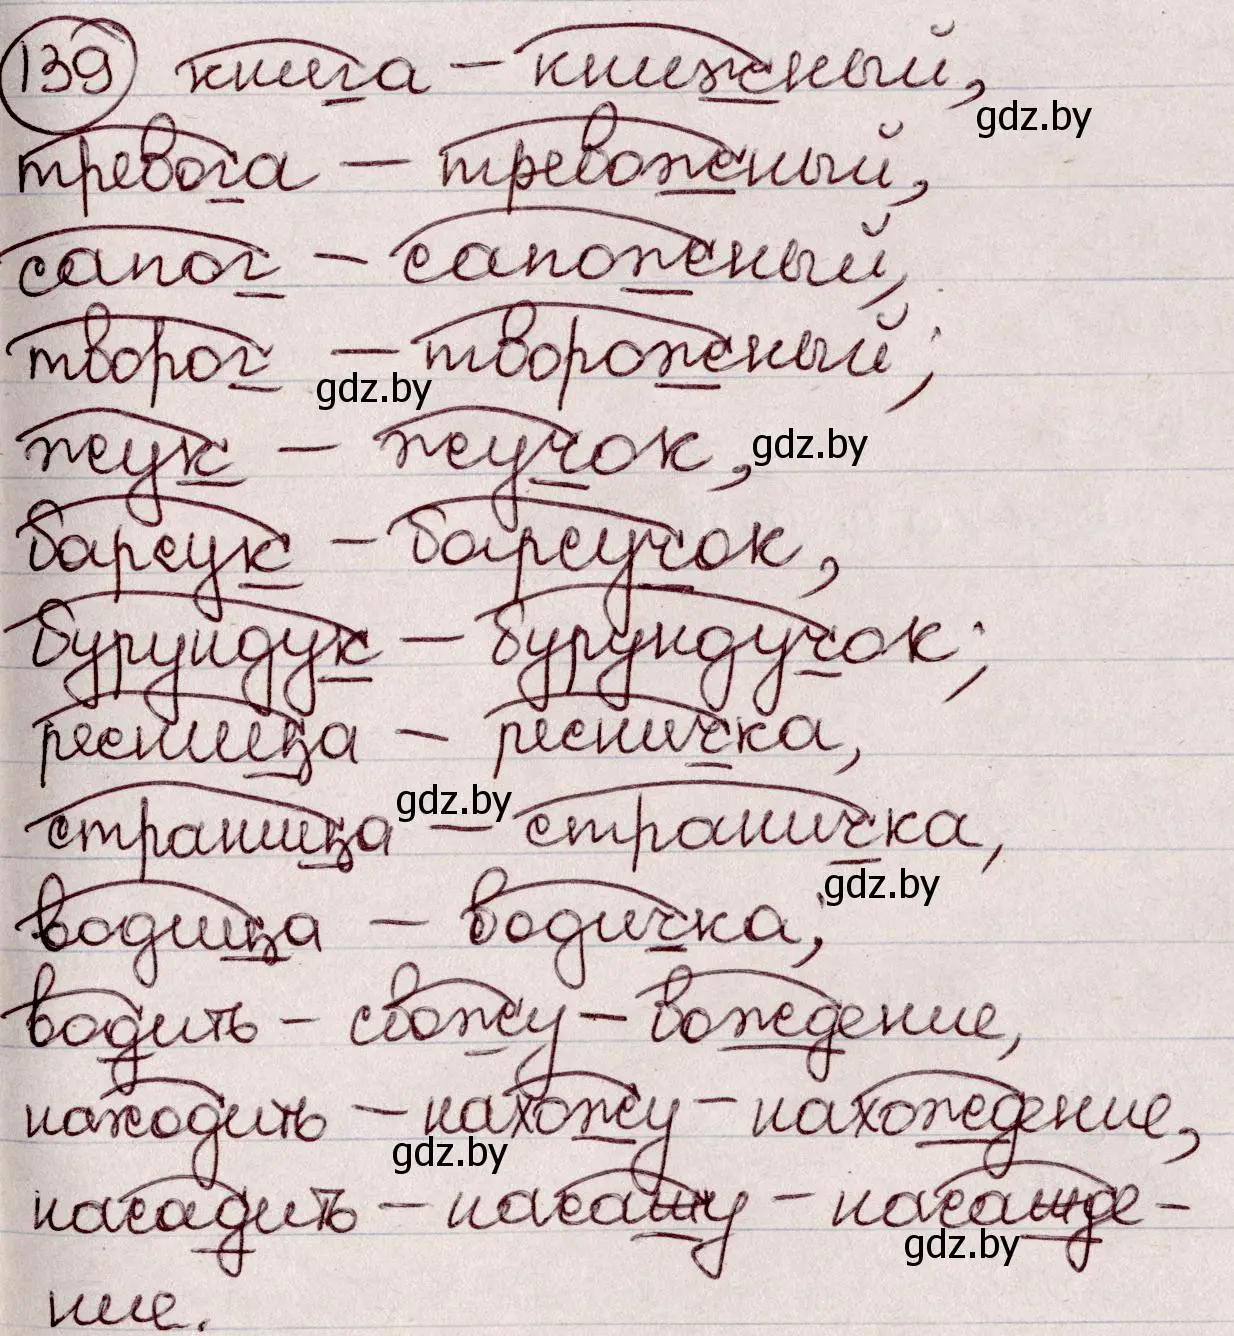 139 книга – книжный,
gdz.by
тревога – тревожный,
сапог – сапожный,
творог – творожный;
gdz.by
жук – жучок, gdz.by
барсук – барсучок,
бурундук – бурундучок;
ресница – ресничка,
gdz.by
страница – страничка,
gdz.by
водица – водичка;
водить – свожу – вождение,
находить – нахожу – нахождение,
gdz.by
насадить – насажу – насажде-
gdz.by
ние.